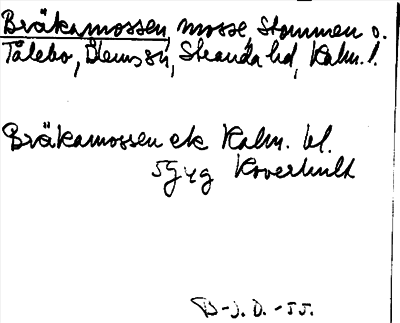 Bräkamossen, mosse, Stommen o.
Tålebo, Ålems sn, Stranda hd, Kalm. l.
Bräkamossen ek Kalm. bl.
5G 4g Koverhult
B-J. D. -55.